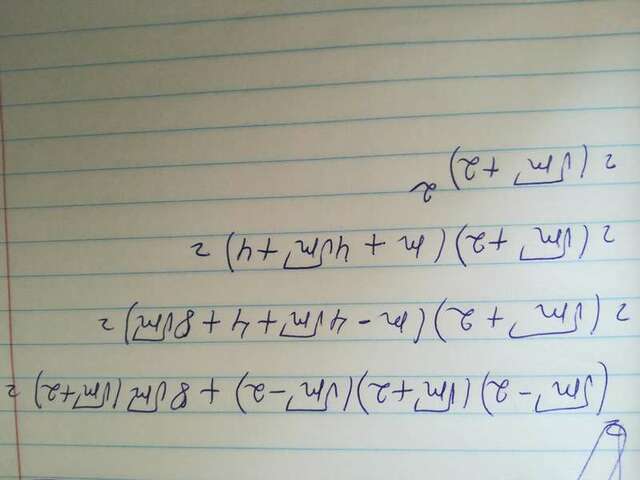 (√m - 2)(√m + 2)(√m - 2) + 8√m(√m + 2) =
= (√m + 2)(m - 4√m + 4 + 8√m) =
= (√m + 2)(m + 4√m + 4) =
= (√m + 2)²